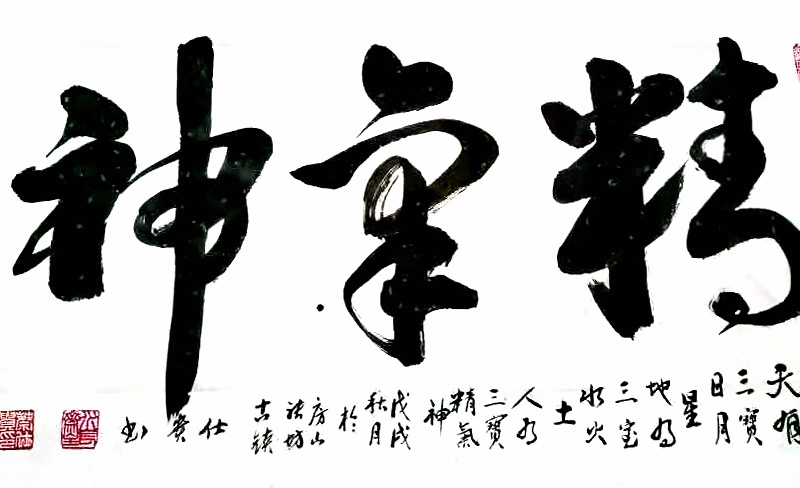 精氣神
天有
三寶
日月
星
地有
三宝
水火
土
人有
三寶
精氣
神
戊戌
秋月
於
房山
古鎮
仕
书